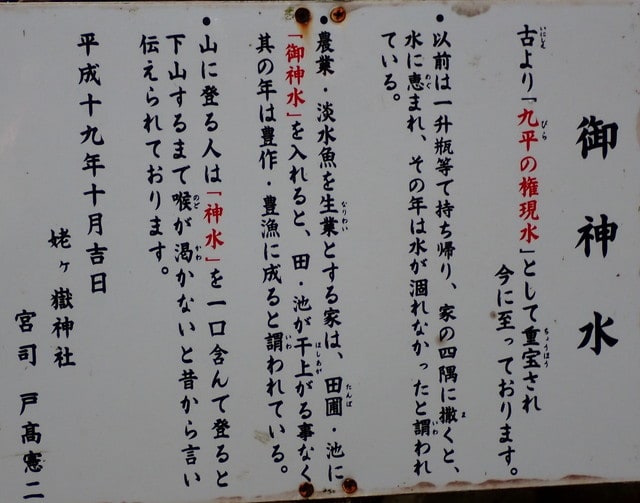 御神水
古より「九平の権現水」として重宝され
今に至っております。
・以前は一升瓶等で持ち帰り、家の四隅に撒くと、
水に恵まれ、その年は水が涸れなかったと謂われ
ている。
・農業・淡水魚を生業とする家は、田圃・池に
「御神水」を入れると、田・池が干上がる事なく
其の年は豊作・豊漁に成ると謂われている。
・山に登る人は「神水」を一口含んで登ると
下山するまで喉が渇かないと昔から言い
伝えられております。
平成十九年十月吉日
姥ヶ嶽神社
宮司 戸高憲二